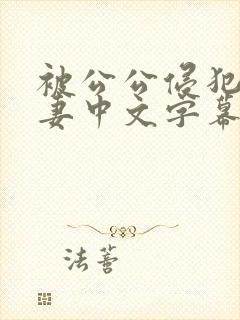 被公公侵犯
妻中文字幕
法蓍